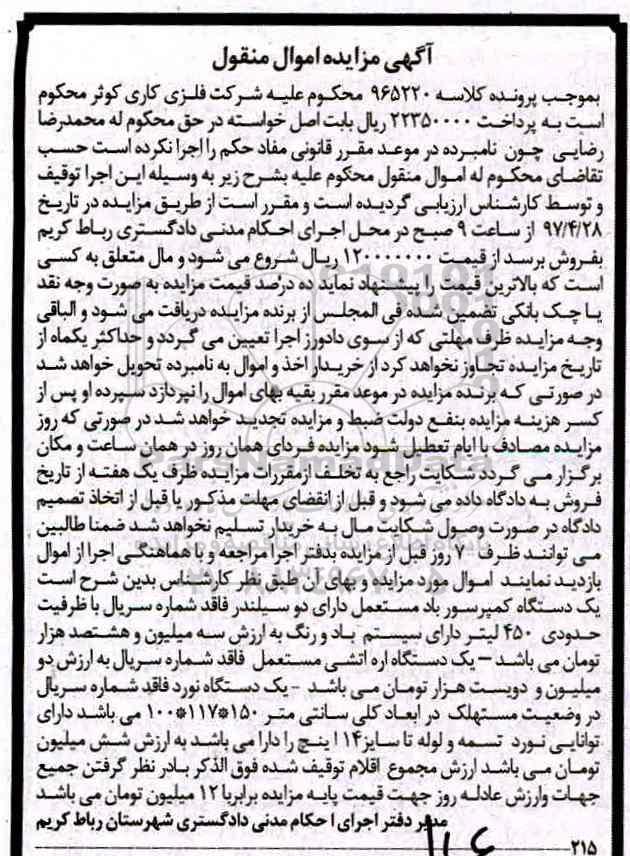 آگهی مزایده اموال منقول
بموجب پرونده کلاسه ۹۶۵۲۲۰ محکوم علیه شرکت فلزی کاری کوثر محکوم
است به پرداخت ۲۲۳۵۰۰۰۰ ریال بابت اصل خواسته در حق محکوم له محمدرضا
رضایی چون نامبرده در موعد مقرر قانونی مفاد حکم را اجرا نکرده است حسب
تقاضای محکوم له اموال منقول محکوم علیه بشرح زیر به وسیله این اجرا توقیف
و توسط کارشناس ارزیابی گردیده است و مقرر است از طریق مزایده در تاریخ
۹۷/۴/۲۸ از ساعت ۹ صبح در محل اجرای احکام مدنی دادگستری رباط کریم
بفروش برسد از قیمت ۱۲۰۰۰۰۰۰۰ ریال شروع می شود و مال متعلق به کسی
است که بالاترین قیمت را پیشنهاد نماید ده درصد قیمت مزایده به صورت وجه نقد
یا چک بانکی تضمین شده فی المجلس از برنده مزایده دریافت می شود و الباقی
وجه مزایده ظرف مهلتی که از سوی دادورز اجرا تعیین می گردد و حداکثر یکماه از
تاریخ مزایده تجاوز نخواهد کرد از خریدار اخذ و اموال به نامبرده تحویل خواهد شد
در صورتی که برنده مزایده در موعد مقرر بقیه بهای اموال را نپردازد سپرده او پس از
کسر هزینه مزایده بنفع دولت ضبط و مزایده تجدید خواهد شد در صورتی که روز
مزایده مصادف با ایام تعطیل شود مزایده فردای همان روز در همان ساعت و مکان
برگزار می گردد شکایت راجع به تخلف ازمقررات مزایده ظرف یک هفته از تاریخ
فروش به دادگاه داده می شود و قبل از انقضای مهلت مذکور یا قبل از اتخاذ تصمیم
دادگاه در صورت وصول شکایت مال به خریدار تسلیم نخواهد شد ضمنا طالبین
می توانند ظرف ۷ روز قبل از مزایده بدفتر اجرا مراجعه و با هماهنگی اجرا از اموال
بازدید نمایند اموال مورد مزایده و بهای آن طبق نظر کارشناس بدین شرح است
یک دستگاه کمپرسور باد مستعمل دارای دو سیلندر فاقد شماره سریال با ظرفیت
حدودی ۴۵۰ لیتر دارای سیستم باد و رنگ به ارزش سه میلیون و هشتصد هزار
تومان می باشد – یک دستگاه اره اتشی مستعمل فاقد شماره سریال به ارزش دو
میلیون و دویست هزار تومان می باشد - یک دستگاه نورد فاقد شماره سریال
در وضعیت مستهلک در ابعاد کلی سانتی متر ۱۵۰*۱۱۷*۱۰۰ می باشد دارای
توانایی نورد تسمه و لوله تا سایز۱۴ اینچ را دارا می باشد به ارزش شش میلیون
تومان می باشد ارزش مجموع اقلام توقیف شده فوق الذکر بادر نظر گرفتن جمیع
جهات وارزش عادله روز جهت قیمت پایه مزایده برابربا ۱۲ میلیون تومان می باشد
مدیر دفتر اجرای ا حکام مدنی دادگستری شهرستان رباط کریم
۲۱۵